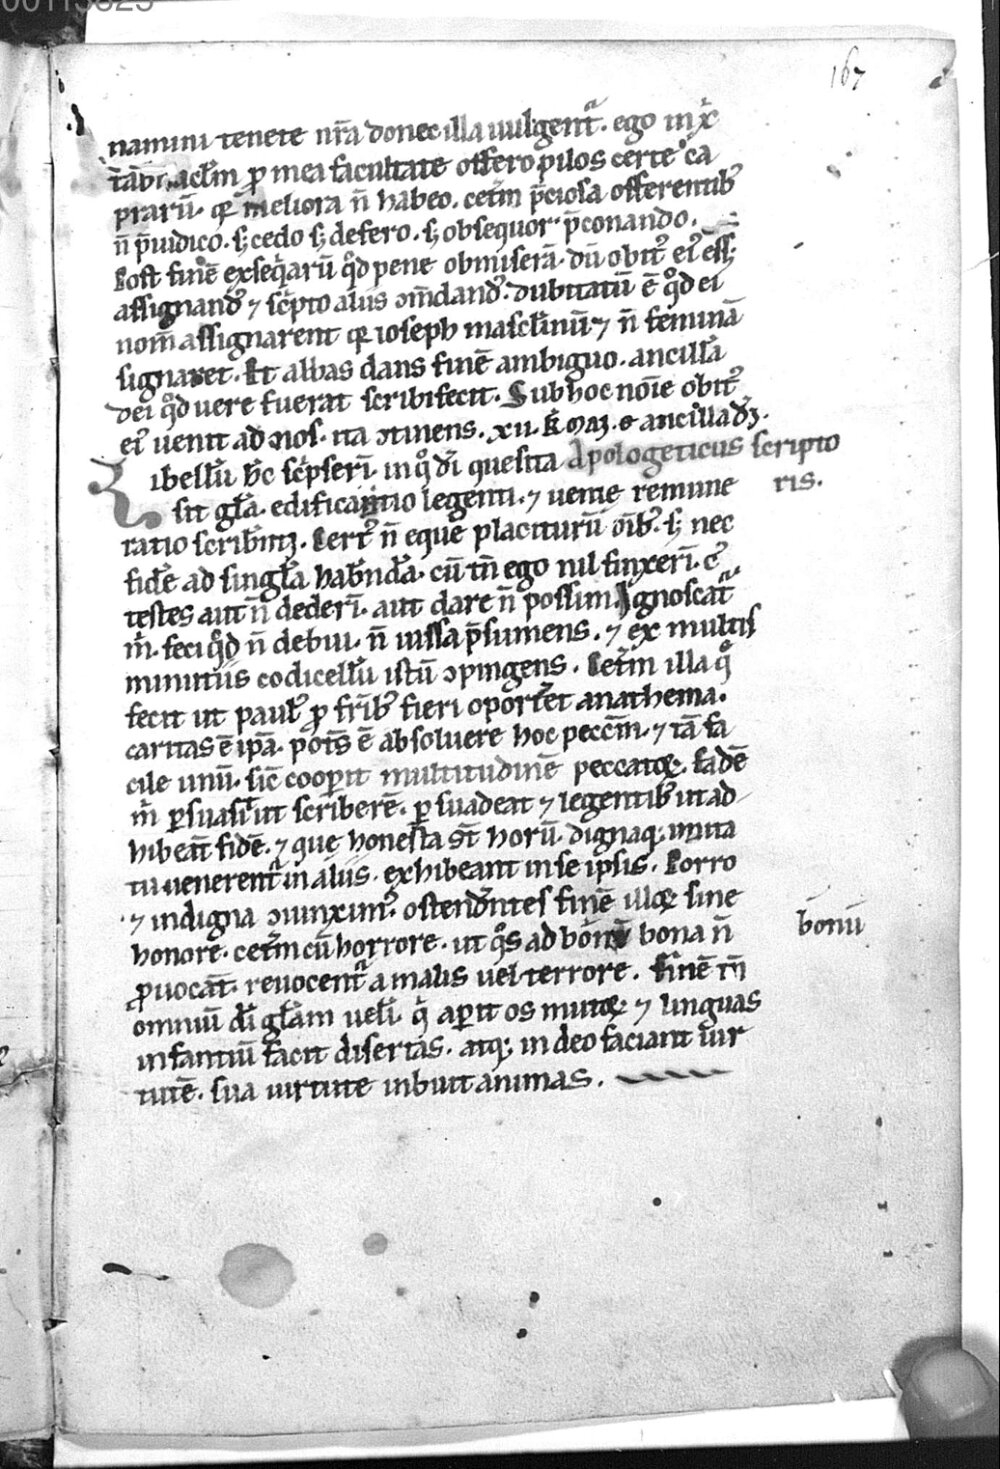 00113823
167
namini tenete nr̄a donec illa uulgent᷑. ego in xp̄i
tab̄naclm̄ ꝓ mea facultate offero pilos certe ca
praꝝ. qꝛ meliora n̄ habeo. cet̄m p̄ciosa offerentibꝰ
n̄ p̄iudico. sꝫ cedo sꝫ defero. sꝫ obsequor p̄conando.
Post finē exseq̄arū qd̄ pene obmiserā. dū obitꝰ eiꝰ eēt
assignandꝰ ⁊ sc̄pto aliis ↄm̄dandꝰ. dubitatū ē qd̄ ei
nom̄ assignarent qꝛ ioseph mascl̄inū ⁊ n̄ feminā
signaret. Et abbas dans finē ambiguo. ancillā
dei qd̄ uere fuerat scribi fecit. Sub hoc noīe obitꝰ
eiꝰ uenit ad nos. ita ↄtinens. xii. kl̄ maii. o ancilla dī.
Libellū hc̄ sc̄pseri. in q̊ dī quesita Apologeticus scripto
sit gl̄a. edificatio legenti. ⁊ uenie remune ris.
ratio scribenti. Certꝰ n̄ eque placiturū oībꝰ. sꝫ nec
fidē ad singl̄a habn̄da. cū tn̄ ego nil finxeri. ⁊
testes aut n̄ dederi. aut dare n̄ possim. Ignoscat᷑
m̄. feci qd̄ n̄ debui. n̄ iussa p̄sumens. ⁊ ex multis
minutiis codicellū istū ↄpingens. Cet̄m illa q̄
fecit ut paulꝰ ꝓ fr̄ibꝰ fieri oportet anathema.
caritas ē ipā. potēs ē absoluere hoc pecc̄m. ⁊ tā fa
cile unū. sic̄ coopit multitudinē peccatoꝝ. Eadē
m̄ ꝑsuasit ut scriberē. ꝑsuadeat ⁊ legentibꝰ ut ad
hibeāt fidē. ⁊ que honesta st̄ horū. dignaqꝫ imita
tu uenerent᷑ in aliis. exhibeant in se ipsis. Porro
⁊ indigna ↄiunximꝰ. ostendentes finē illoꝝ sine
honore. cet̄m cū horrore. ut q̊s ad bonū bona n̄ bonū
ꝓuocāt. reuocent᷑ a malis uel terrore. Finē tn̄
omniū dī gl̄am ueli. q̄ aperit os mutoꝝ ⁊ linguas
infantiū facit disertas. atqꝫ in deo faciant uir
tutē. sua uirtute inbuit animas.